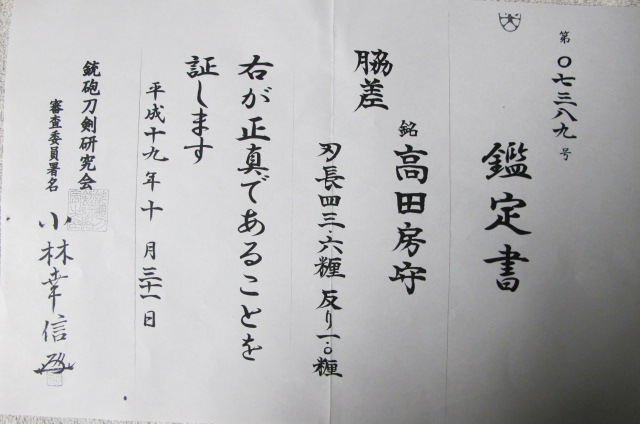 第〇七三八九号
鑑定書
脇差
銘 高田房守
刃長四三・六糎 反り一・〇糎
右が正真であることを
証します
平成十九年十月三十一日
銃砲刀剣研究会
審査委員署名
小林幸信